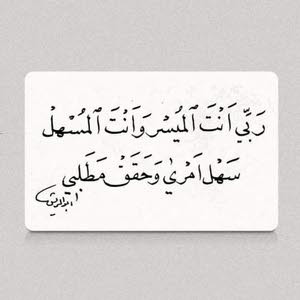 رَبِّي اَنْتَ ٱلْمُيَسِّر وَاَنْتَ ٱلْمُسَهِّل
سَهِّل اَمْرِي وَحَقِّقْ مَطْلَبِي